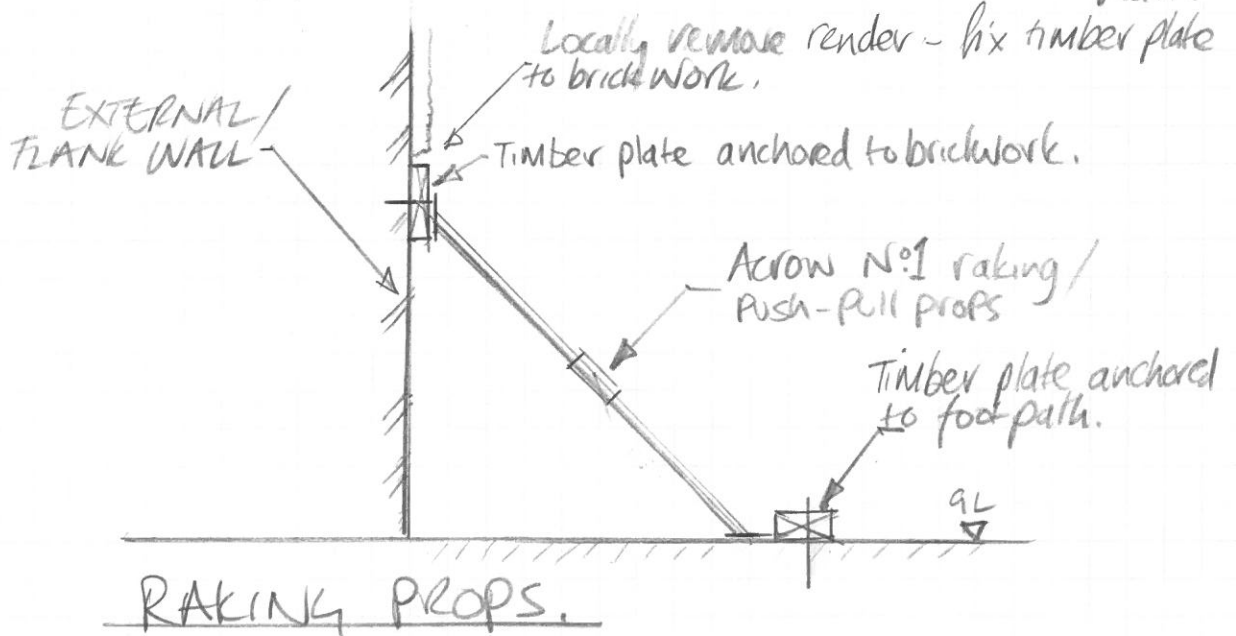 Locally remove render - fix timber plate
to brickwork.
EXTERNAL/
FLANK WALL
Timber plate anchored to brickwork.
Acrow Nº1 raking/
push-pull props
Timber plate anchored
to footpath.
GL
RAKING PROPS.